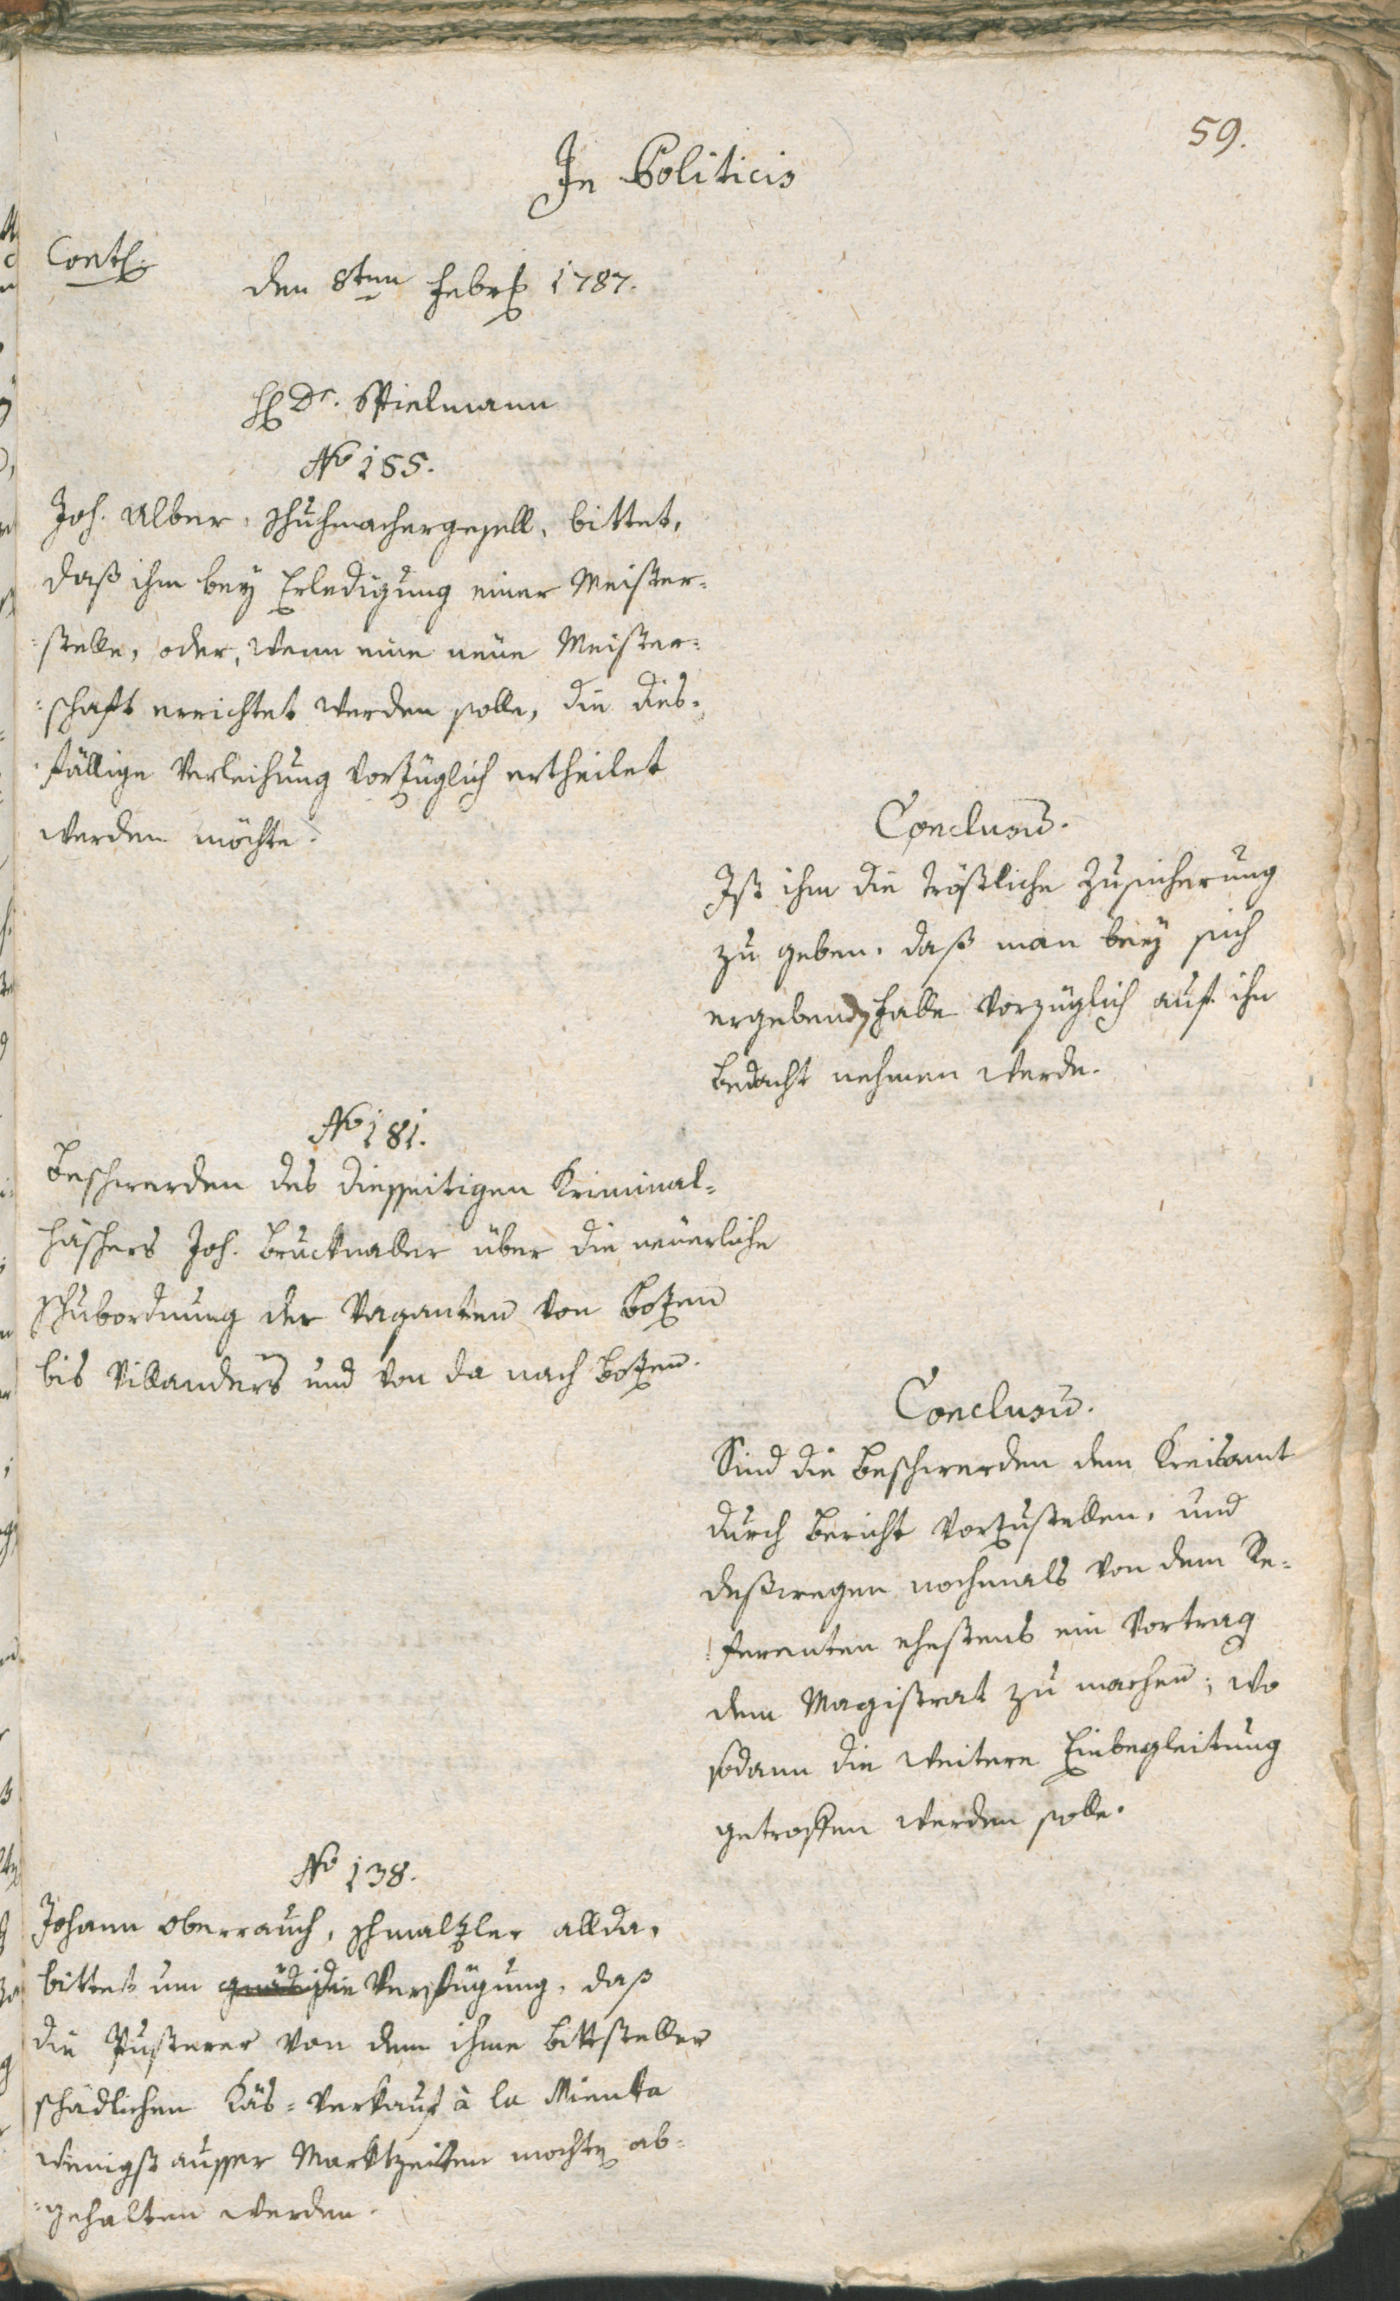 59.
In Politicis
Cont.
den 8ten Febr. 1787.
H. Dr. Spielmann
No 155.
Joh. Alber, Schuhmachergesell, bittet,
daß ihm bey Erledigung einer Meister=
=stelle, oder, wenn eine neue Meister=
=schaft errichtet werden solle, die dies=
fällige Verleihung vorzüglich ertheilet
werden möchte.
Conclusū.
Ist ihm die tröstliche Zusicherung
zu geben, daß man bey sich
ergebend Falle vorzüglich auf ihn
bedacht nehmen werde.
No 181.
Beschwerden des diesseitigen Kriminal=
häschers Joh. Brucknaller über die neüerliche
Schubordnung der Vaganten von Botzen
bis Villanders und von da nach Botzen.
Conclusū.
Sind die Beschwerden dem Kreisamt
durch Bericht vorzustellen, und
deßwegen nochmals von dem Re=
=ferenten ehestens ein Vortrag
dem Magistrat zu machen; wo
sodann die weitere Einbegleitung
getroffen werden solle.
No 138.
Johann Oberrauch, Schmalzler allda,
bittet um die Verfügung, daß
die Pusterer von dem ihme Bittsteller
schädlichen Käs=Verkauf à la Minuta
wenigst ausser Marktzeiten mochten ab=
=gehalten werden.